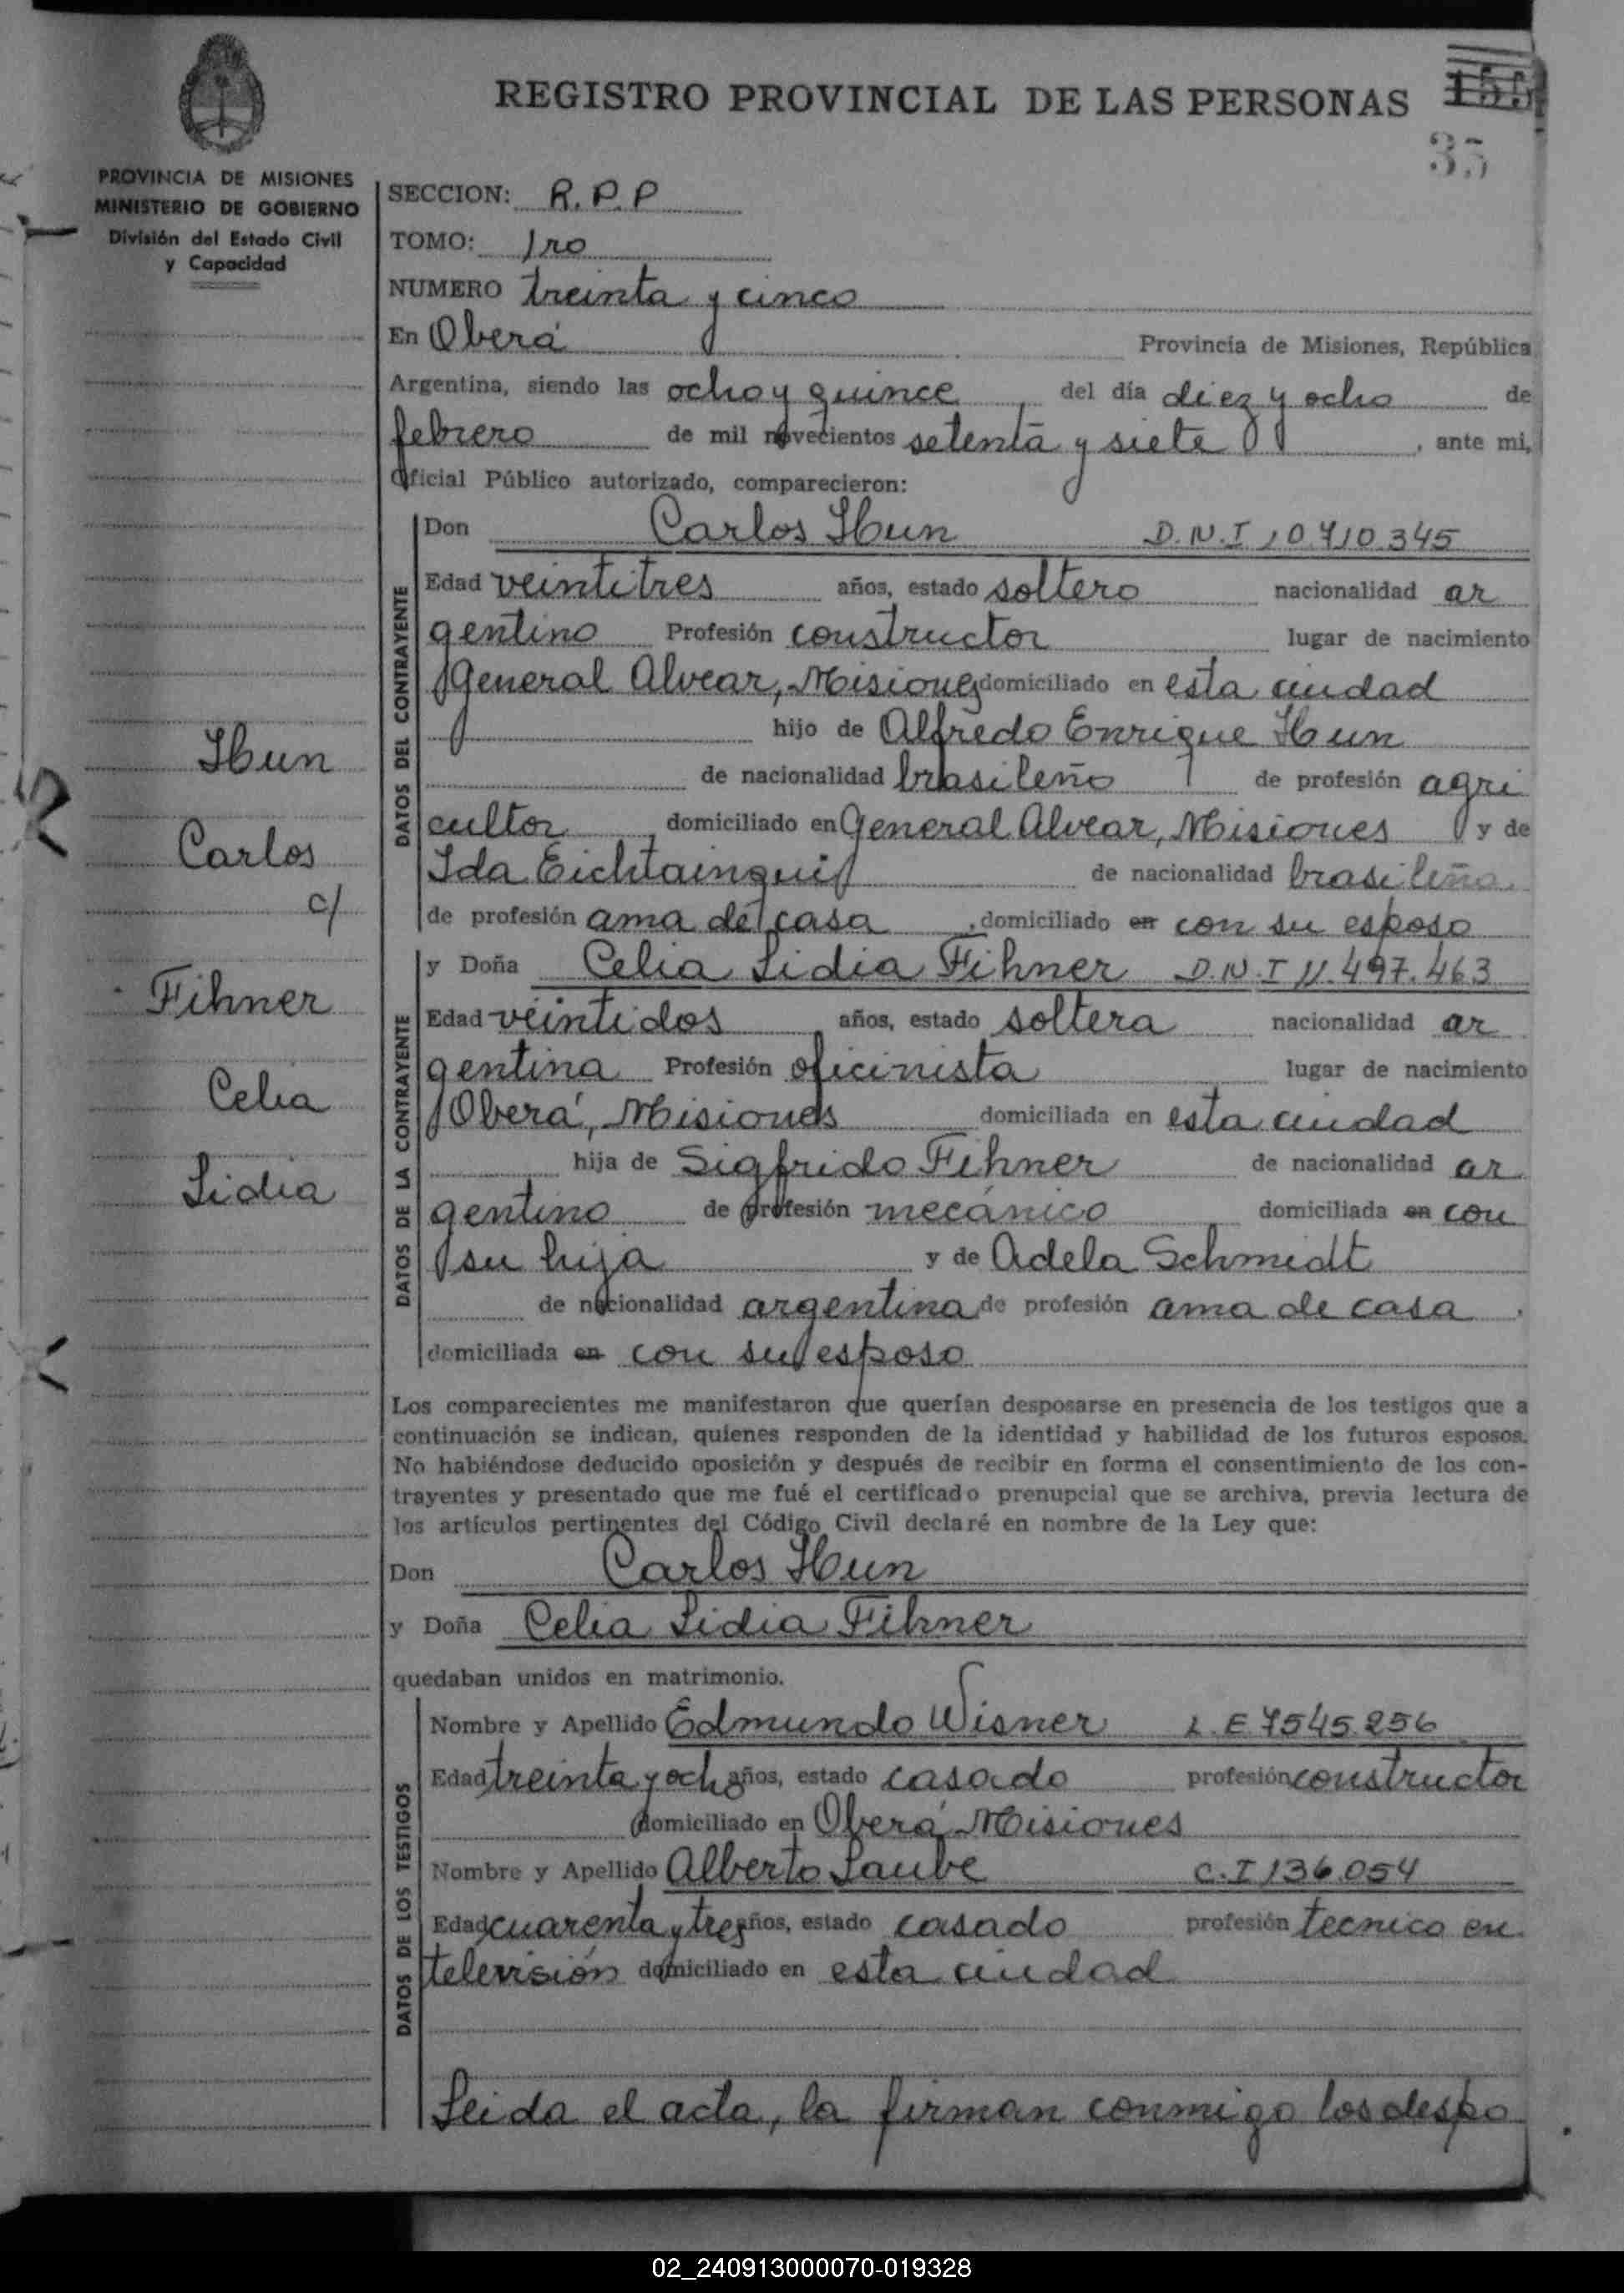 REGISTRO PROVINCIAL DE LAS PERSONAS
155
35
PROVINCIA DE MISIONES
MINISTERIO DE GOBIERNO
División del Estado Civil
y Capacidad
SECCION: R.P.P
TOMO: 1ro
NUMERO treinta y cinco
En Oberá Provincia de Misiones, República
Argentina, siendo las ocho y quince del día diez y ocho de
febrero de mil novecientos setenta y siete, ante mi,
Oficial Público autorizado, comparecieron:
DATOS DEL CONTRAYENTE
Don Carlos Hun D.N.I 10.710.345
Edad veintitres años, estado soltero nacionalidad ar
gentino Profesión constructor lugar de nacimiento
General Alvear, Misiones domiciliado en esta ciudad
hijo de Alfredo Enrique Hun
de nacionalidad brasileño de profesión agri
cultor, domiciliado en General Alvear, Misiones y de
Ida de nacionalidad brasileña
de profesión ama de casa, domiciliado en con su esposo
DATOS DE LA CONTRAYENTE
y Doña Celia Lidia Fihner D.N.I 11.497.463
Edad veintidos años, estado soltera nacionalidad ar
gentina Profesión oficinista lugar de nacimiento
Oberá, Misiones domiciliada en esta ciudad
hija de Sigfrido Fihner de nacionalidad ar
gentino de profesión mecánico domiciliada en con
su hija y de Adela Schmidt
de nacionalidad argentina de profesión ama de casa,
domiciliada en con su esposo
Hun
Carlos
c/
Fihner
Celia
Lidia
Los comparecientes me manifestaron que querían desposarse en presencia de los testigos que a
continuación se indican, quienes responden de la identidad y habilidad de los futuros esposos.
No habiéndose deducido oposición y después de recibir en forma el consentimiento de los con-
trayentes y presentado que me fué el certificado prenupcial que se archiva, previa lectura de
los artículos pertinentes del Código Civil declaré en nombre de la Ley que:
Don Carlos Hun
y Doña Celia Lidia Fihner
quedaban unidos en matrimonio.
DATOS DE LOS TESTIGOS
Nombre y Apellido Edmundo Wisner L.E 7545.256
Edad treinta y ocho años, estado casado profesión constructor
domiciliado en Oberá Misiones
Nombre y Apellido Alberto Laube C.I 136.054
Edad cuarenta y tres años, estado casado profesión tecnico en
televisión domiciliado en esta ciudad
Leida el acta, la firman conmigo los despo
02_240913000070-019328